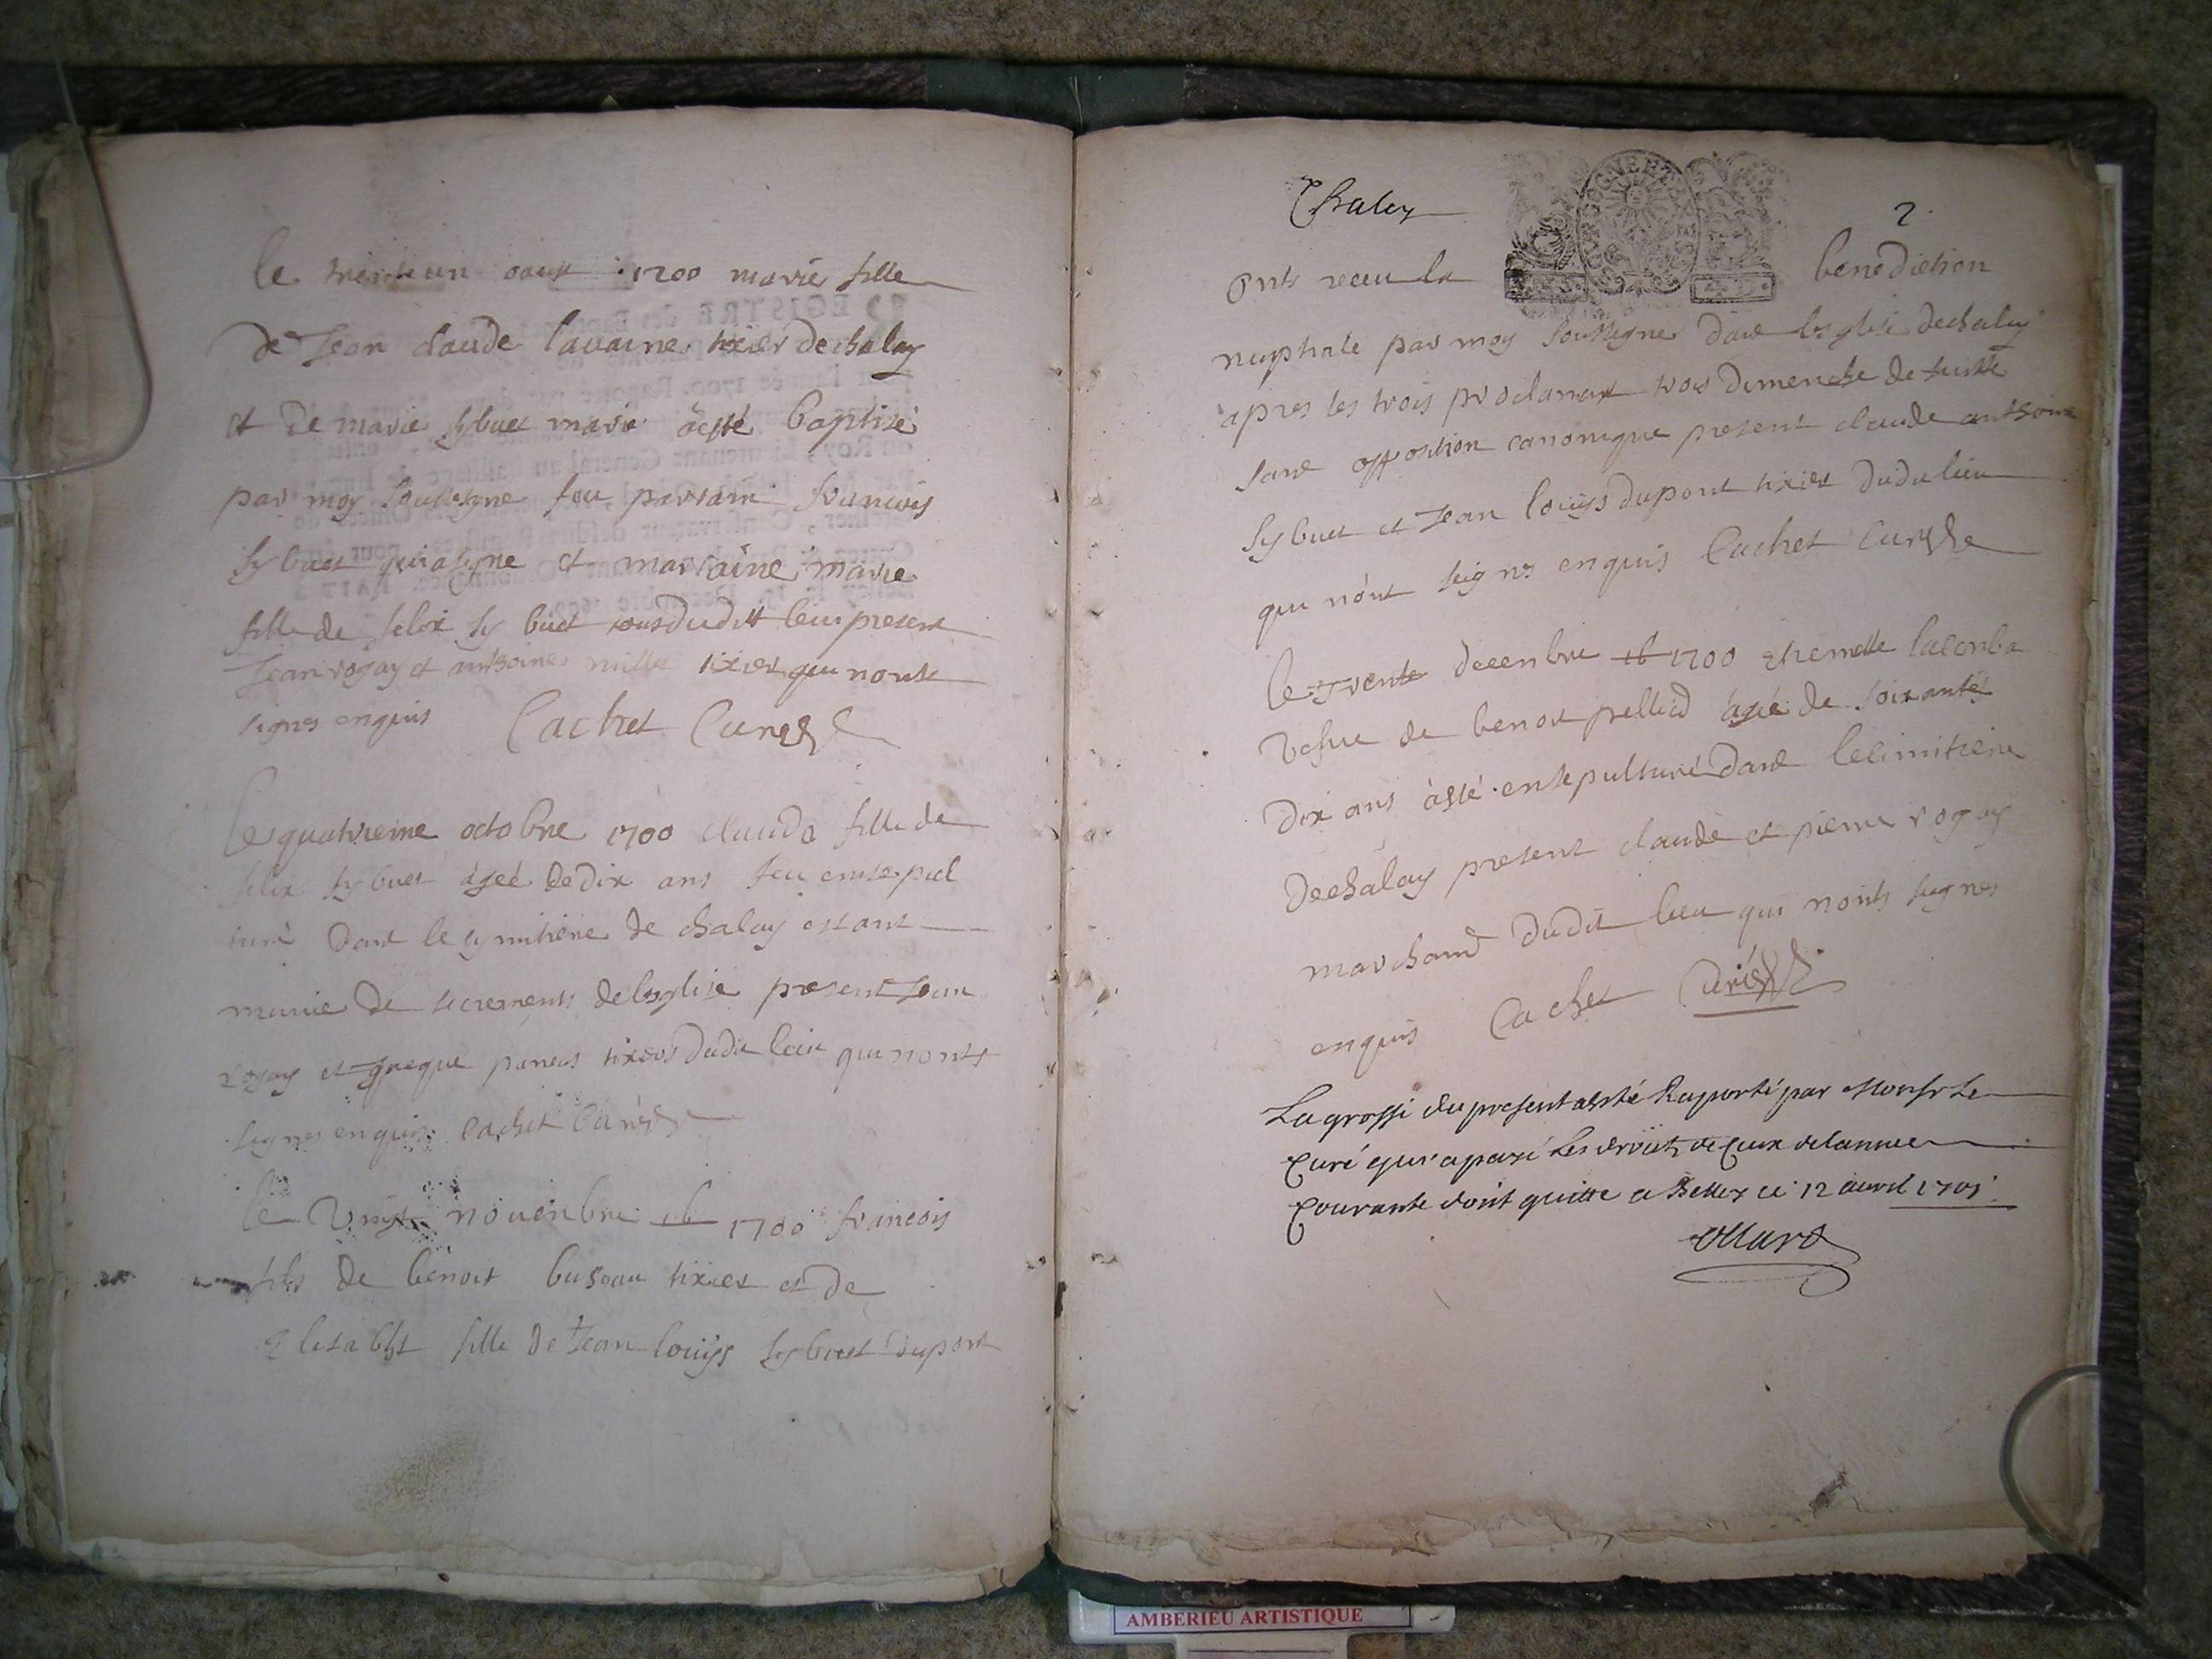 le trentieun aoust 1700 marie fille
de Jean claude lavaine tixier de chaley
et de marie sybuet marie àesté baptisé
par moy soussigne feu parrain francois
sybuet qui a signe et marraine marie
fille de felix sy buet tous dudit leiu present
Jean rogay et anthoine tixier qui nonts
signes enquis Cachet Curé
le quatrieme octobre 1700 claude fille de
felix sybuet àgeé de dix ans feu ensepul
turé dans le symitiere de chaley estant
munie de secrements de leglise present Jean
rogay et tixiers dudit leiu qui nonts
signes enquis Cachet Curé
le vingt novenbre 16 1700 francois
fils de benoit tixier et de
Elisabet fille de Jean louijs sybuet dupont
Chaley
2
onts receu la benediction
nuptiale par moy soussigner dans leglise de chaley
apres les trois proclamaõ trois dimenche de suitte
sans opposition canonique present claude anthoine
sybuet et Jean louijs dupont tixier dudu lieu
qui nònt signes enquis Cachet Curé
le Trente decenbre 16 1700 laconba
vefue de benoit àgé de soixante
dix ans àsté ensepulturé dans le cimitiere
de chaley present claude et pierre rogay
marchand dudit lieu qui nonts signes
enquis Cachet Curé
La grosse du present a esté Raporté par Monsr Le
Curé qui a payé Les droits de Ceux de lannee
Courante dont quitte a Belley ce 12 auvril 1701
AMBERIEU ARTISTIQUE